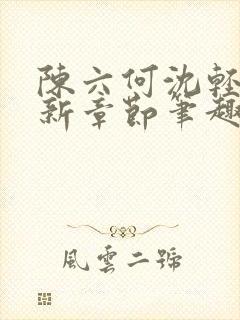 陳六何沈輕
新章節筆趣
風雲二號